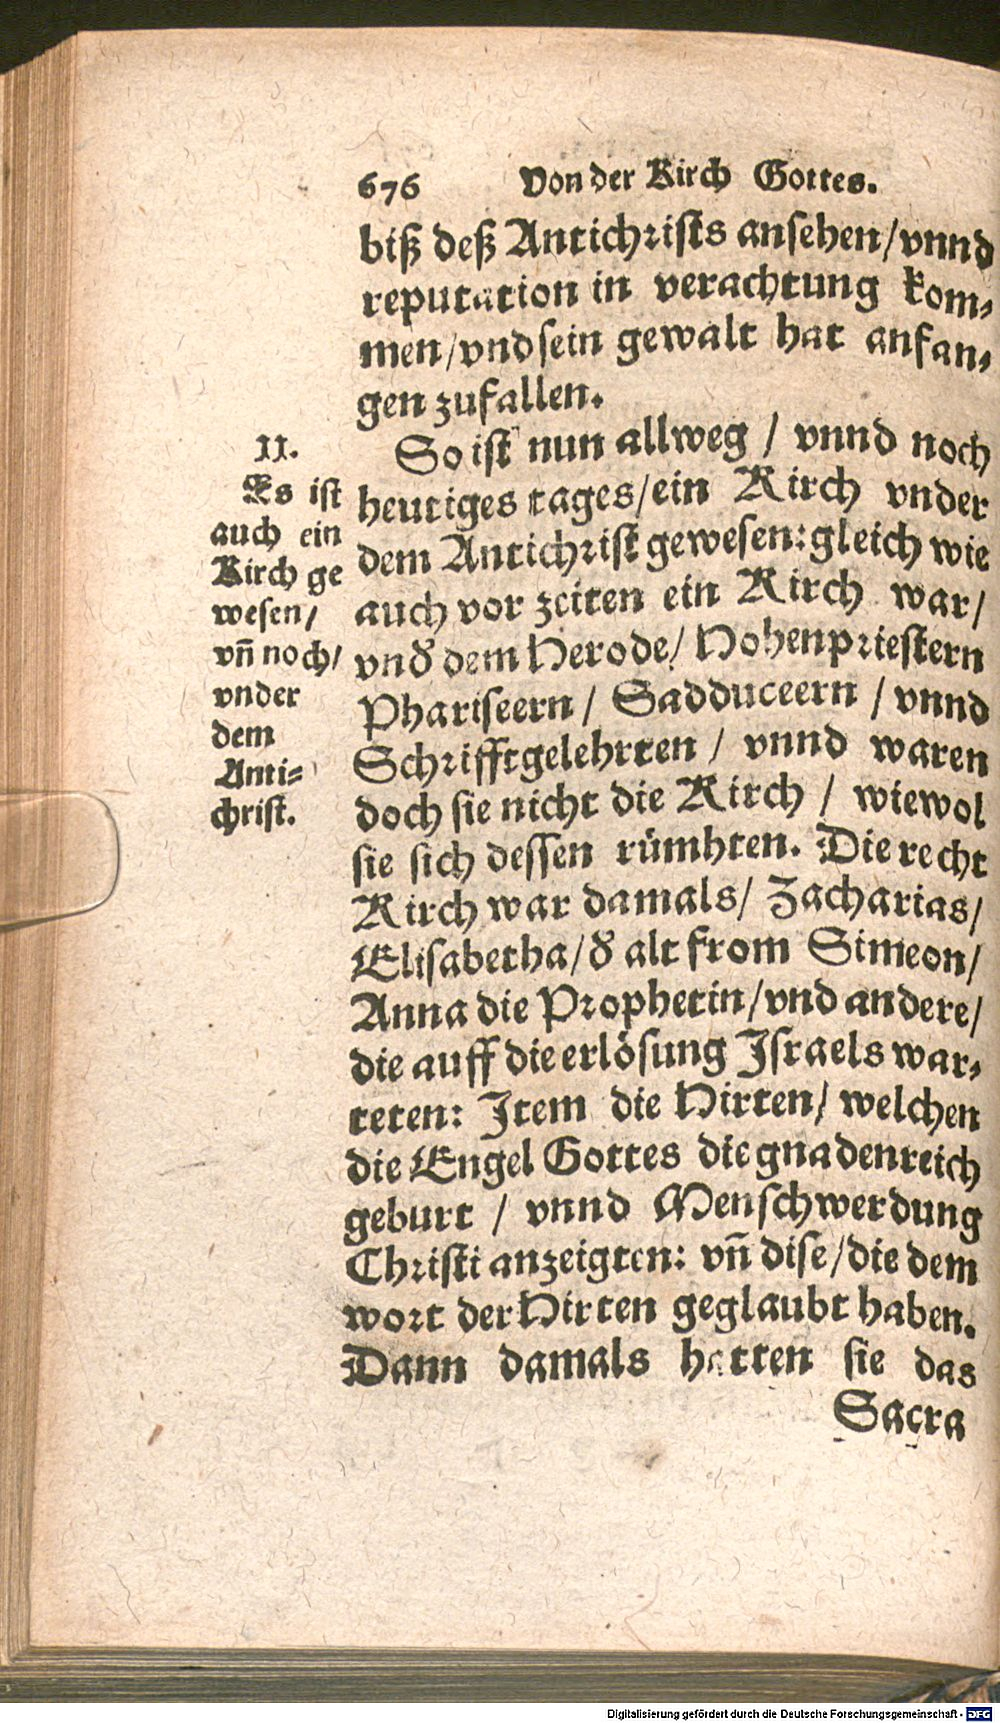 676 Von der Kirch Gottes.
biß deß Antichrists ansehen/vnnd
reputation in verachtung kom-
men/vnd sein gewalt hat anfan-
gen zufallen.
11.
Es ist
auch ein
Kirch ge
wesen/
vñ noch/
vnder
dem
Anti-
christ.
So ist nun allweg / vnnd noch
heutiges tages/ein Kirch vnder
dem Antichrist gewesen: gleich wie
auch vor zeiten ein Kirch war/
vnđ dem Herode/ Hohenpriestern
Phariseern / Sadduceern / vnnd
Schrifftgelehrten / vnnd waren
doch sie nicht die Kirch / wiewol
sie sich dessen rümhten. Die recht
Kirch war damals/ Zacharias/
Elisabetha/đ alt from Simeon/
Anna die Prophetin/vnd andere/
die auff die erlösung Israels war-
teten: Item die Hirten/ welchen
die Engel Gottes die gnadenreich
geburt / vnnd Menschwerdung
Christi anzeigten: vñ dise/die dem
wort der Hirten geglaubt haben.
Dann damals hatten sie das
Sacra
Digitalisierung gefördert durch die Deutsche Forschungsgemeinschaft - DFG